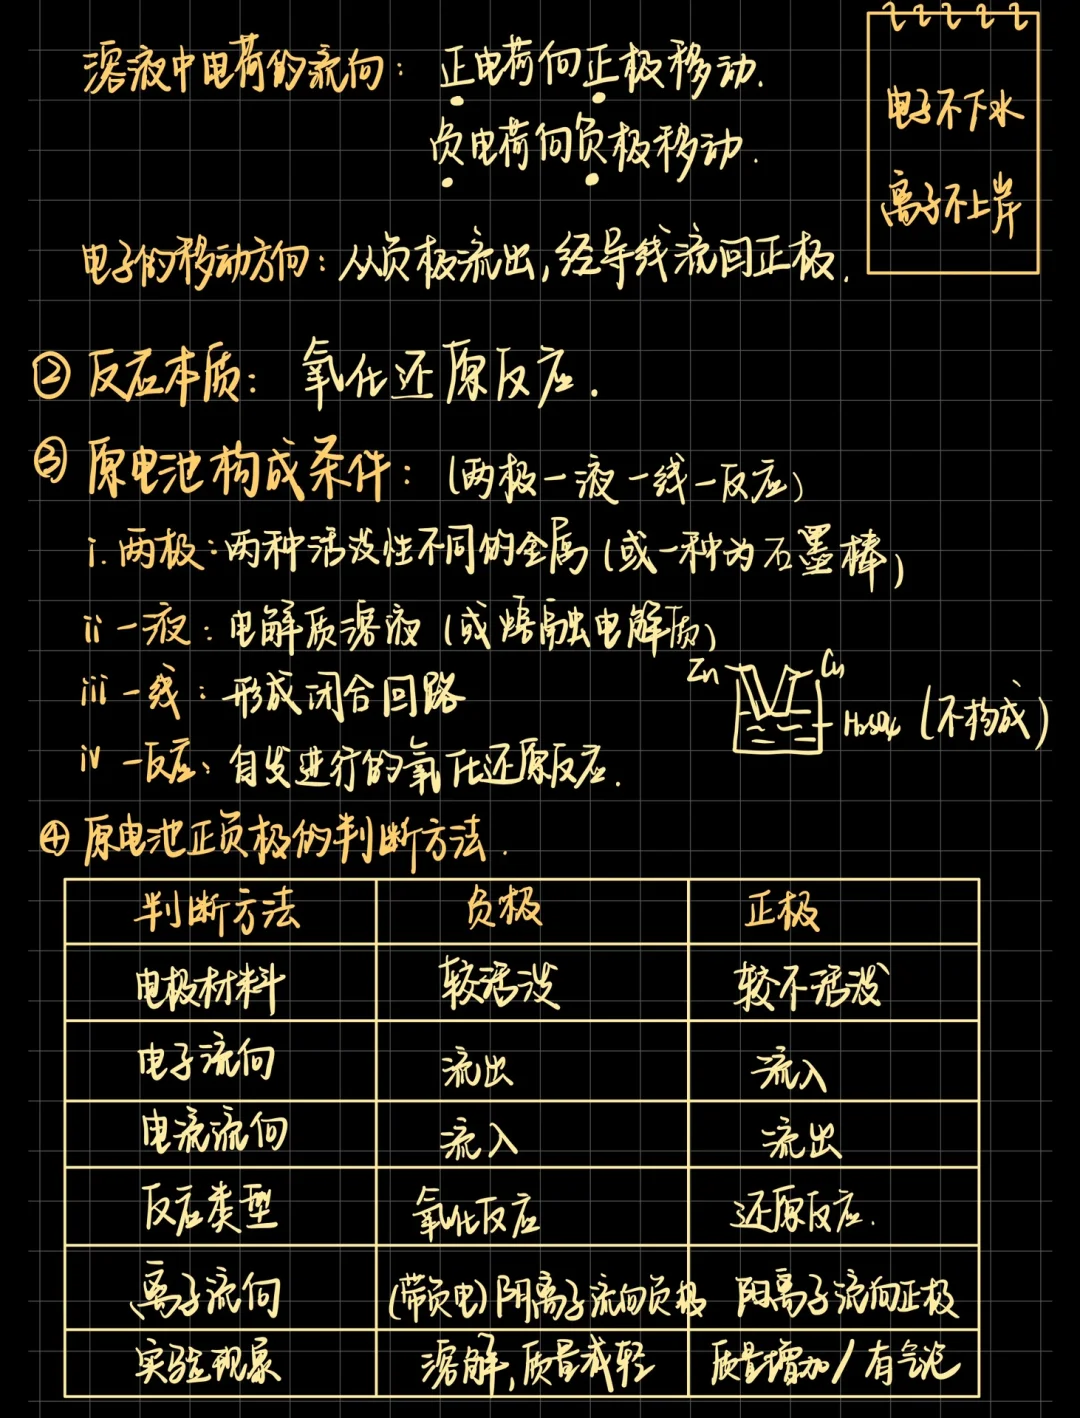 溶液中电荷的流向：正电荷向正极移动.
负电荷向负极移动.
电子不下水
离子不上岸
电子的移动方向：从负极流出,经导线流回正极.
② 反应本质：氧化还原反应.
③ 原电池构成条件：(两极一液一线一反应)
i. 两极：两种活泼性不同的金属(或一种为石墨棒)
ii 一液：电解质溶液(或熔融电解质)
iii 一线：形成闭合回路
iv 一反应：自发进行的氧化还原反应.
Zn Cu
H₂SO₄ (不构成)
④ 原电池正负极的判断方法.
判断方法 负极 正极
电极材料 较活泼 较不活泼
电子流向 流出 流入
电流流向 流入 流出
反应类型 氧化反应 还原反应.
离子流向 (带负电)阴离子流向负极 阳离子流向正极
实验现象 溶解,质量减轻 质量增加/有气泡